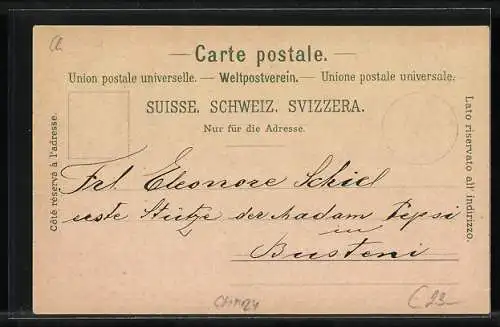 Carte postale.
Union postale universelle. — Weltpostverein. — Unione postale universale.
SUISSE. SCHWEIZ. SVIZZERA.
Nur für die Adresse.
Côté réservé à l'adresse.
Lato riservato all' indirizzo.
Frl. Eleonore Schiel
erste Stütze der Madam Pepsi
in
Busteni